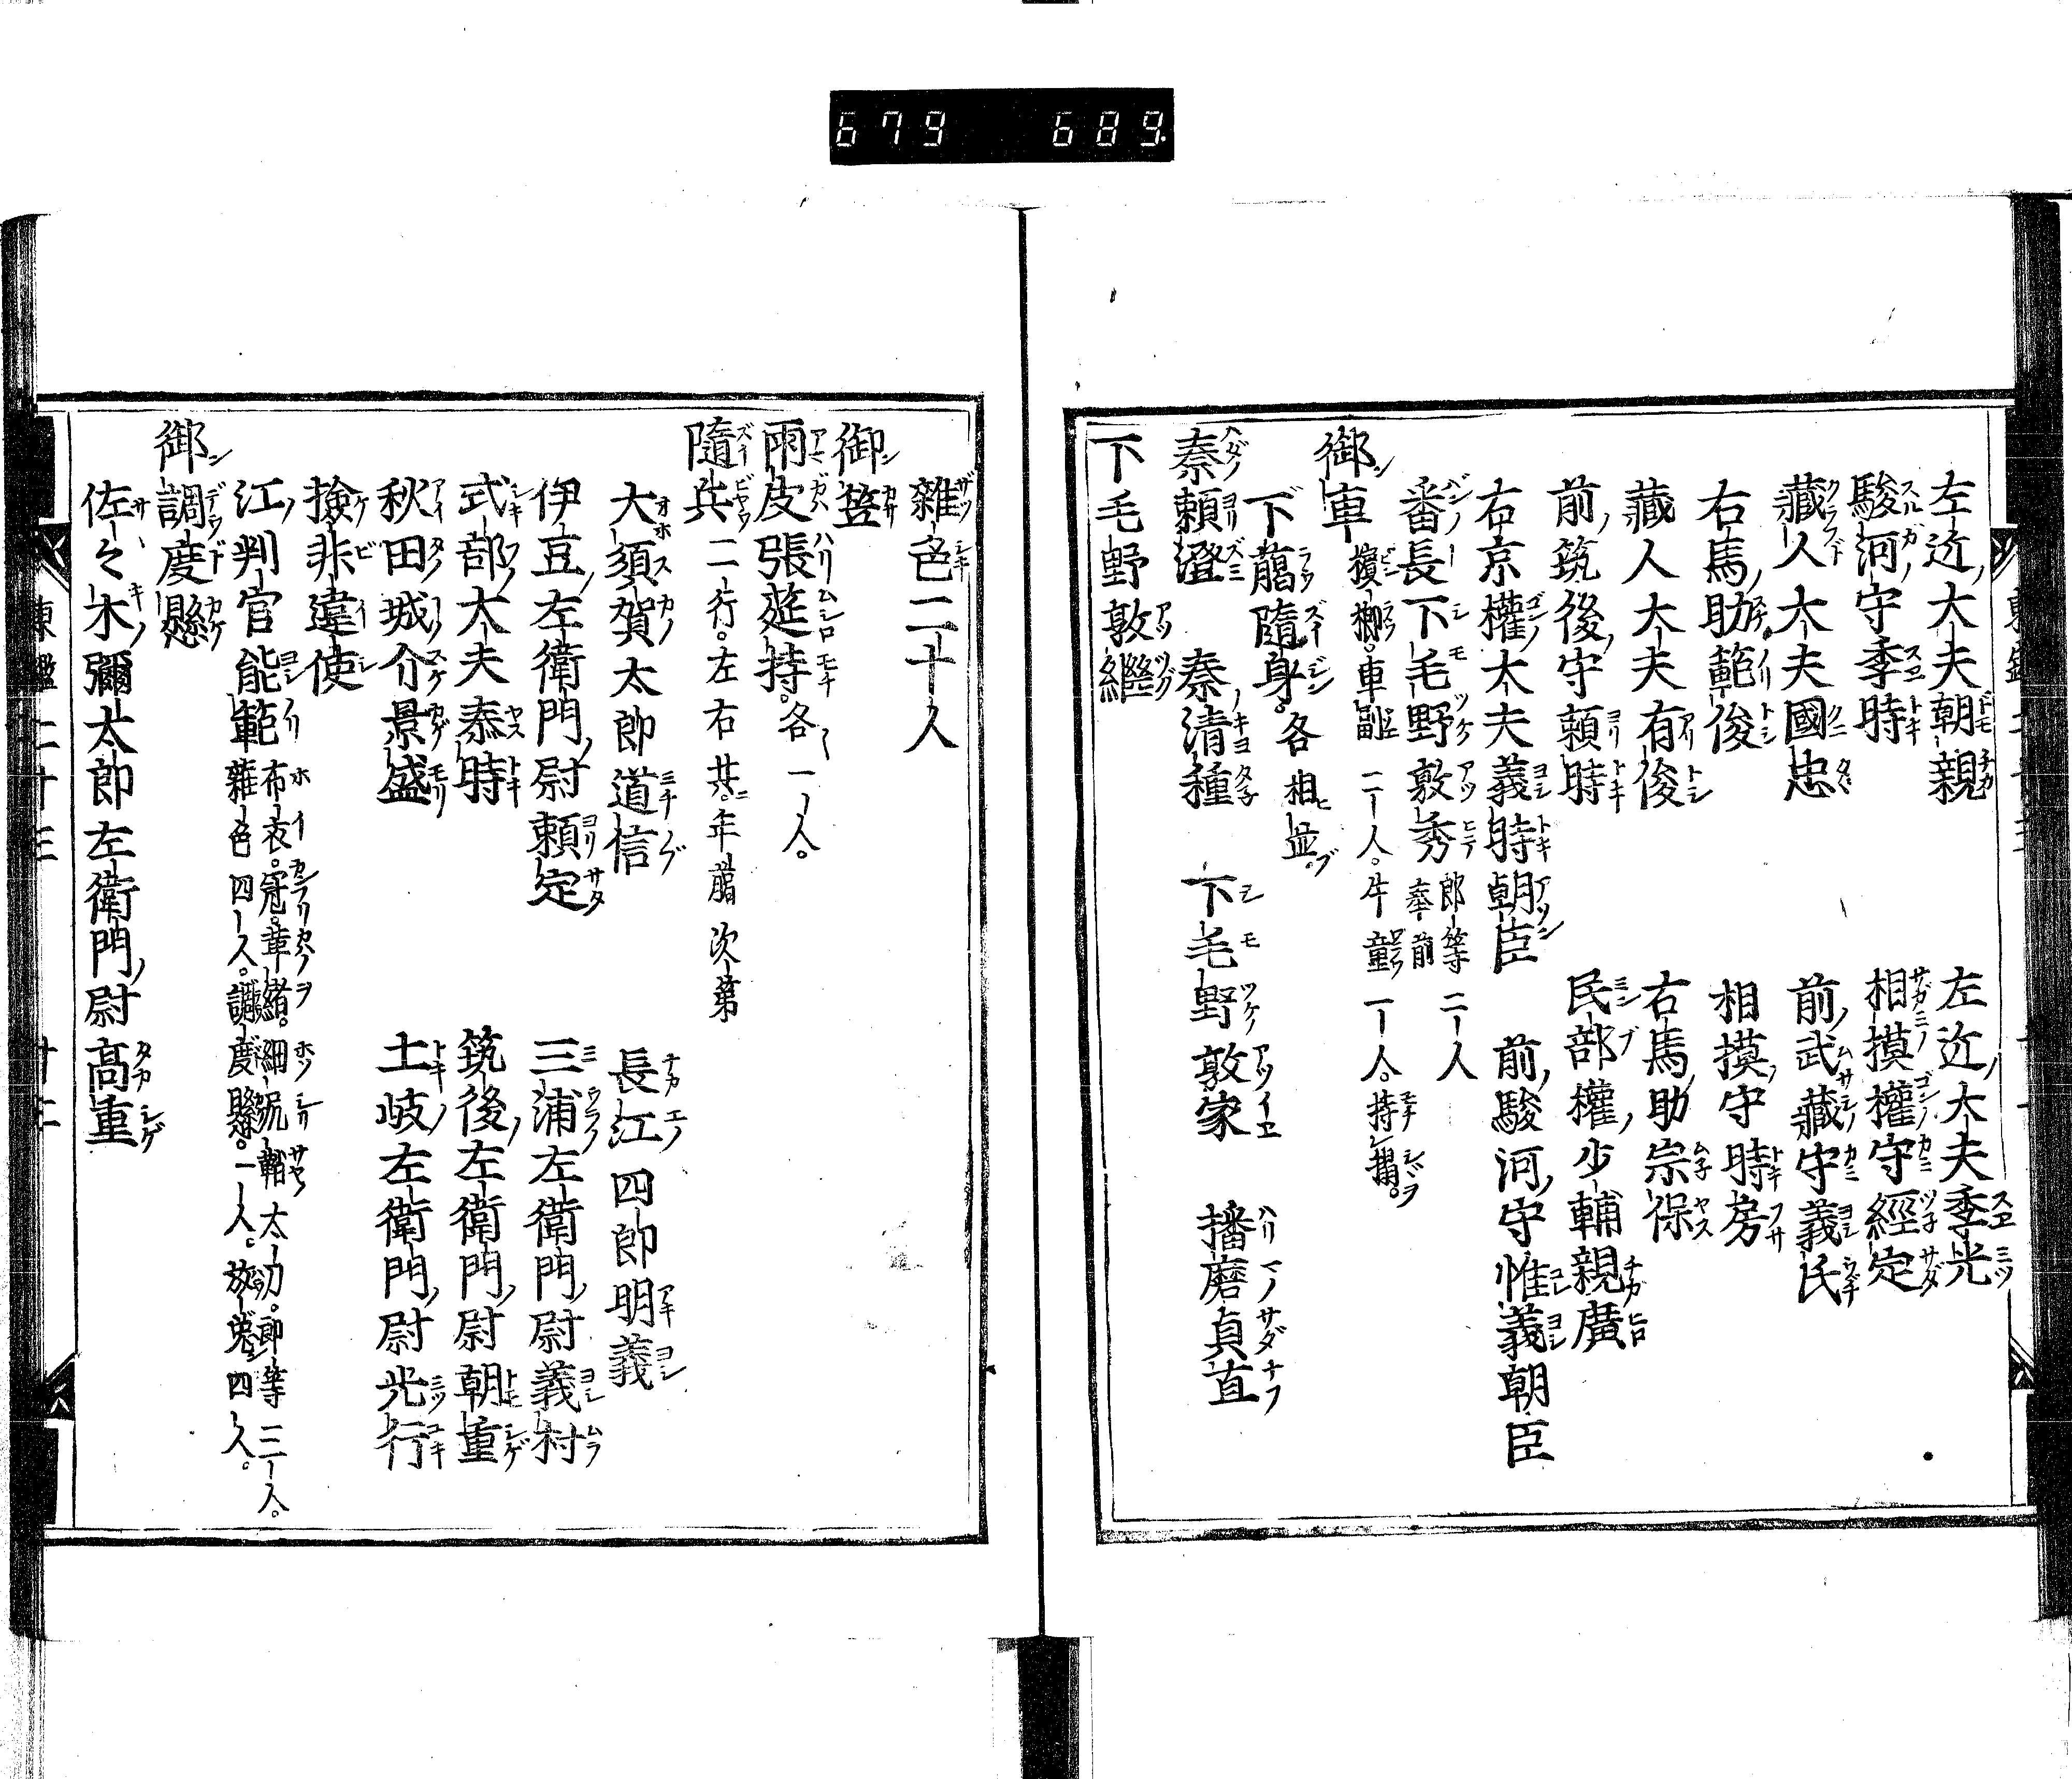 679 689
左近大夫朝親 左近大夫季光
駿河守季時 相摸權守經定
藏人大夫國忠 前武藏守義氏
右馬助範俊 相摸守時房
藏人大夫有俊 右馬助宗保
前筑後守頼時 民部權少輔親廣
右京權大夫義時朝臣 前駿河守惟義朝臣
番長下毛野敦秀 郎等二人
奉前
御車 檳榔。車副二人。牛童一人。持榻。
下﨟隨身。各相並。
秦頼澄 秦清種 下毛野敦家 播磨貞直
下毛野敦繼
雜色二十人
御笠
雨皮張筵持。各一人。
隨兵 二行。左右共。年﨟次第
大須賀太郎道信 長江四郎明義
伊豆左衛門尉頼定 三浦左衛門尉義村
式部大夫泰時 筑後左衛門尉朝重
秋田城介景盛 土岐左衛門尉光行
撿非違使
江判官能範 布衣。冠。革緒。細尻鞘太刀。郎等三人。
雜色四人。調度懸。一人。放免四人。
御調度懸
佐々木彌太郎左衛門尉高重
東鑑二十三